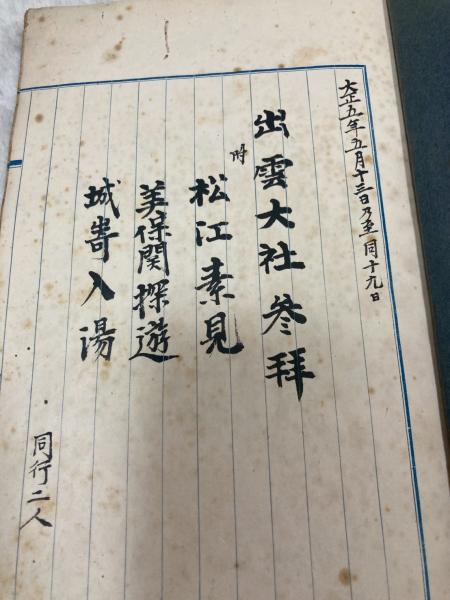 大正五年五月十三日乃至同十九日
出雲大社参拝
附
松江素見
美保関探遊
城嵜入湯
同行二人